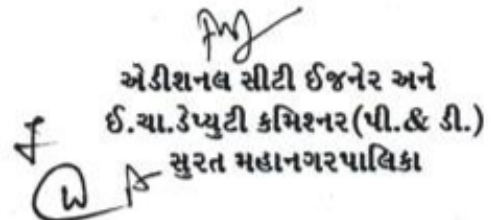 એડીશનલ સીટી ઈજનેર અને
ઈ.ચા.ડેપ્યુટી કમિશ્નર(પી.& ડી.)
સુરત મહાનગરપાલિકા